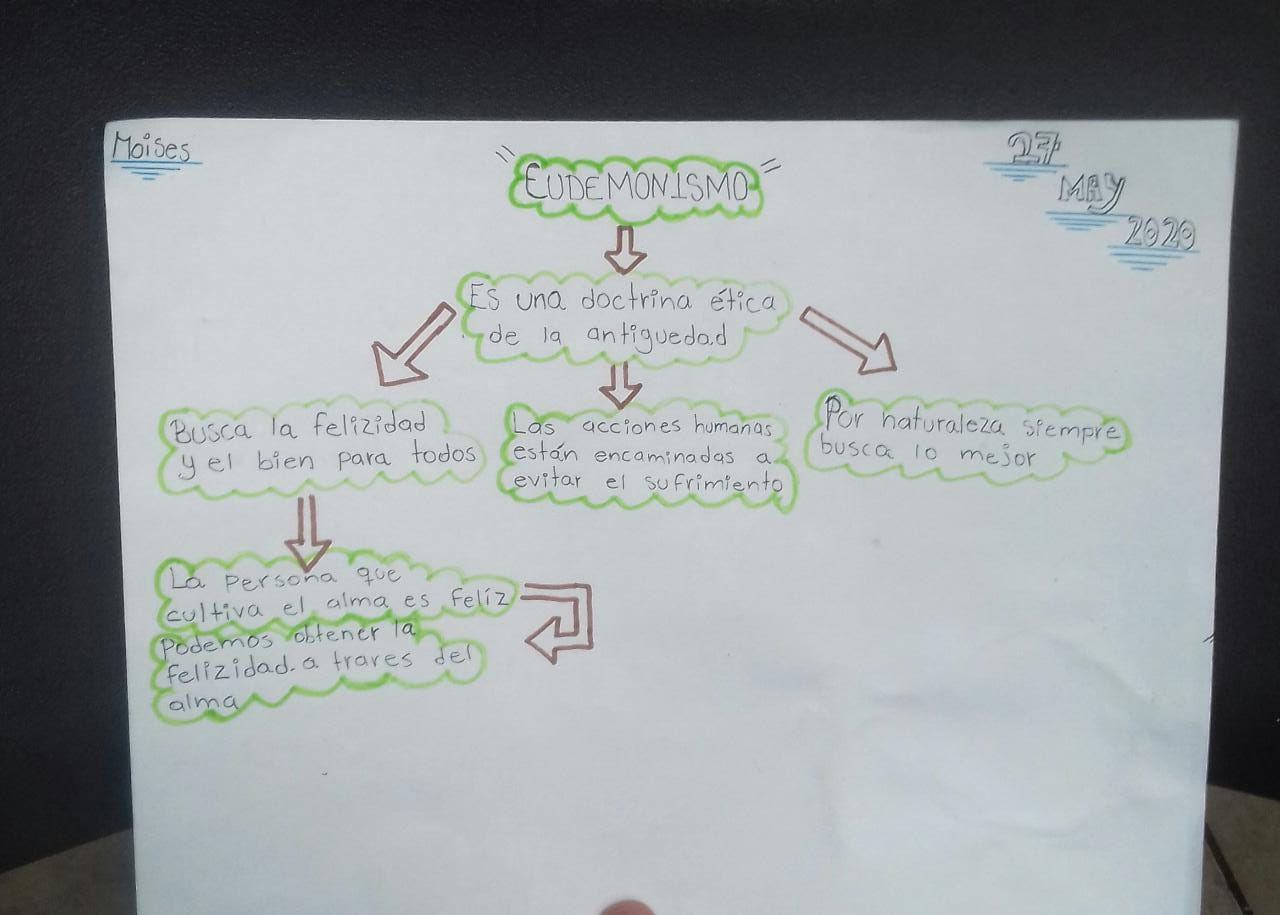 Moises
27
MAY
2020
"EUDEMONISMO"
Es una doctrina ética
de la antiguedad
Busca la felizidad
y el bien para todos
Las acciones humanas
están encaminadas a
evitar el sufrimiento
Por naturaleza siempre
busca lo mejor
La persona que
cultiva el alma es felíz
Podemos obtener la
felizidad. a traves del
alma